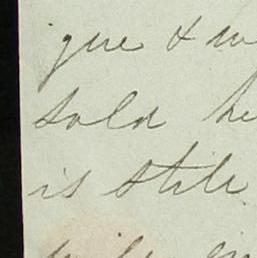 gue & w
sold he
is still